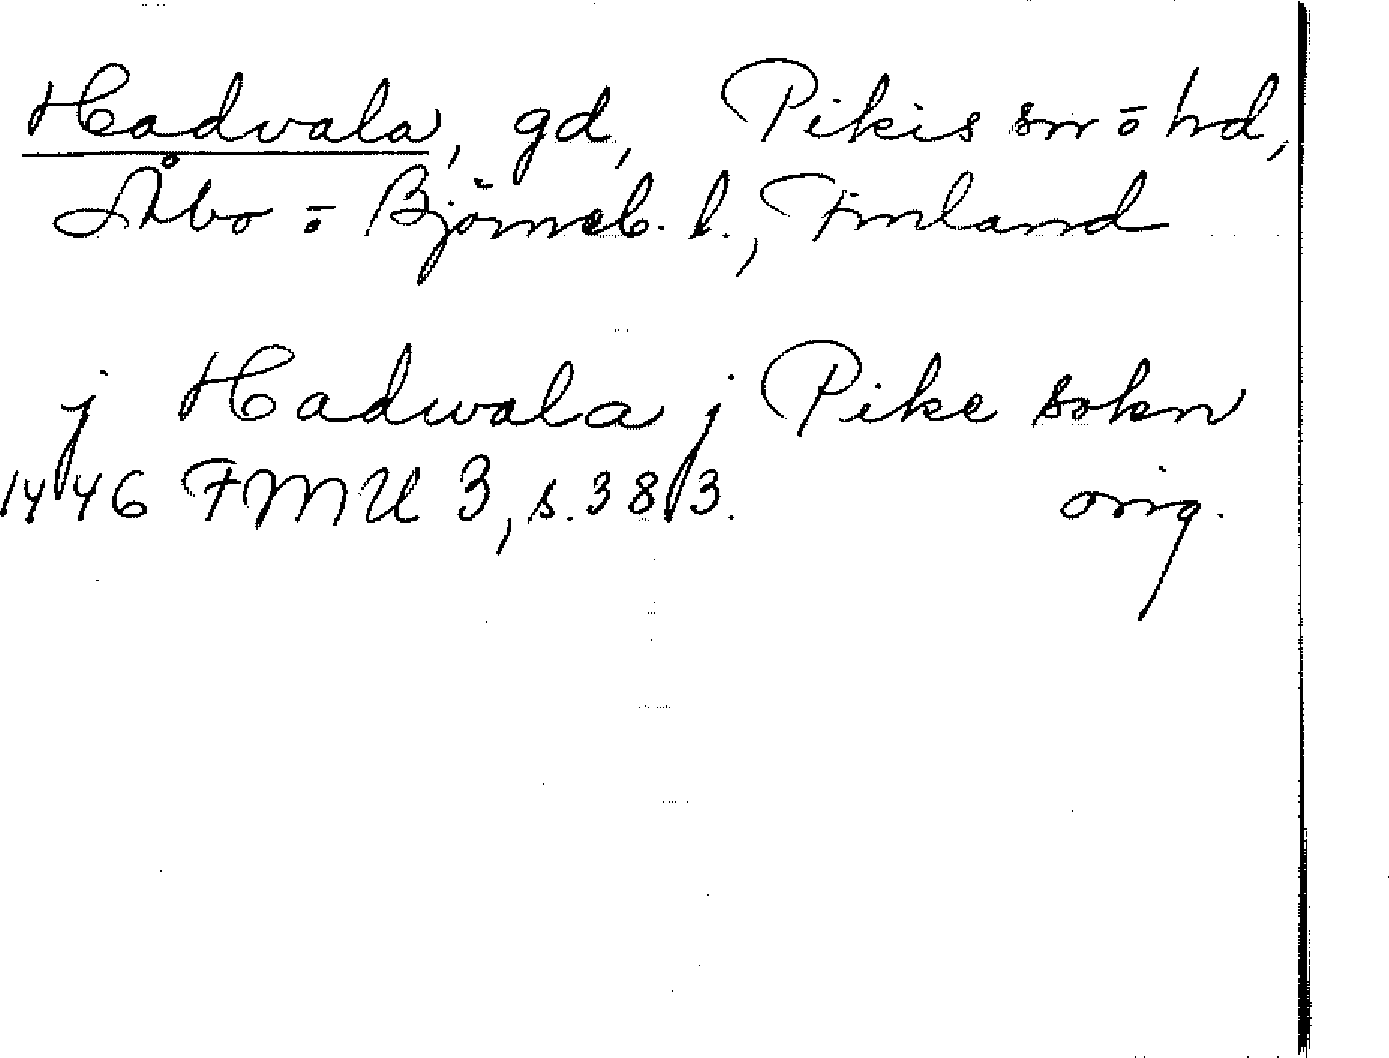 Hadvala, gd, Pikis sn o hd,
Åbo o Björneb. l., Finland
j Hadwala j Pike sokn
1446 FMU 3, s. 383. orig.